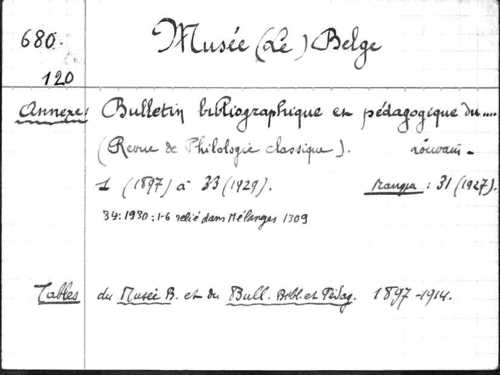 680. Musée (Le) Belge
120
Annexe: Bulletin bibliographique et pédagogique du....
(Revue de Philologie classique). Louvain -
1 (1897) à 33 (1929). manque : 31 (1927).
34: 1930: 1-6 relié dans Mélanges 1309
Tables du Musée B. et du Bull. Bibl. et Pédag. 1897-1914.